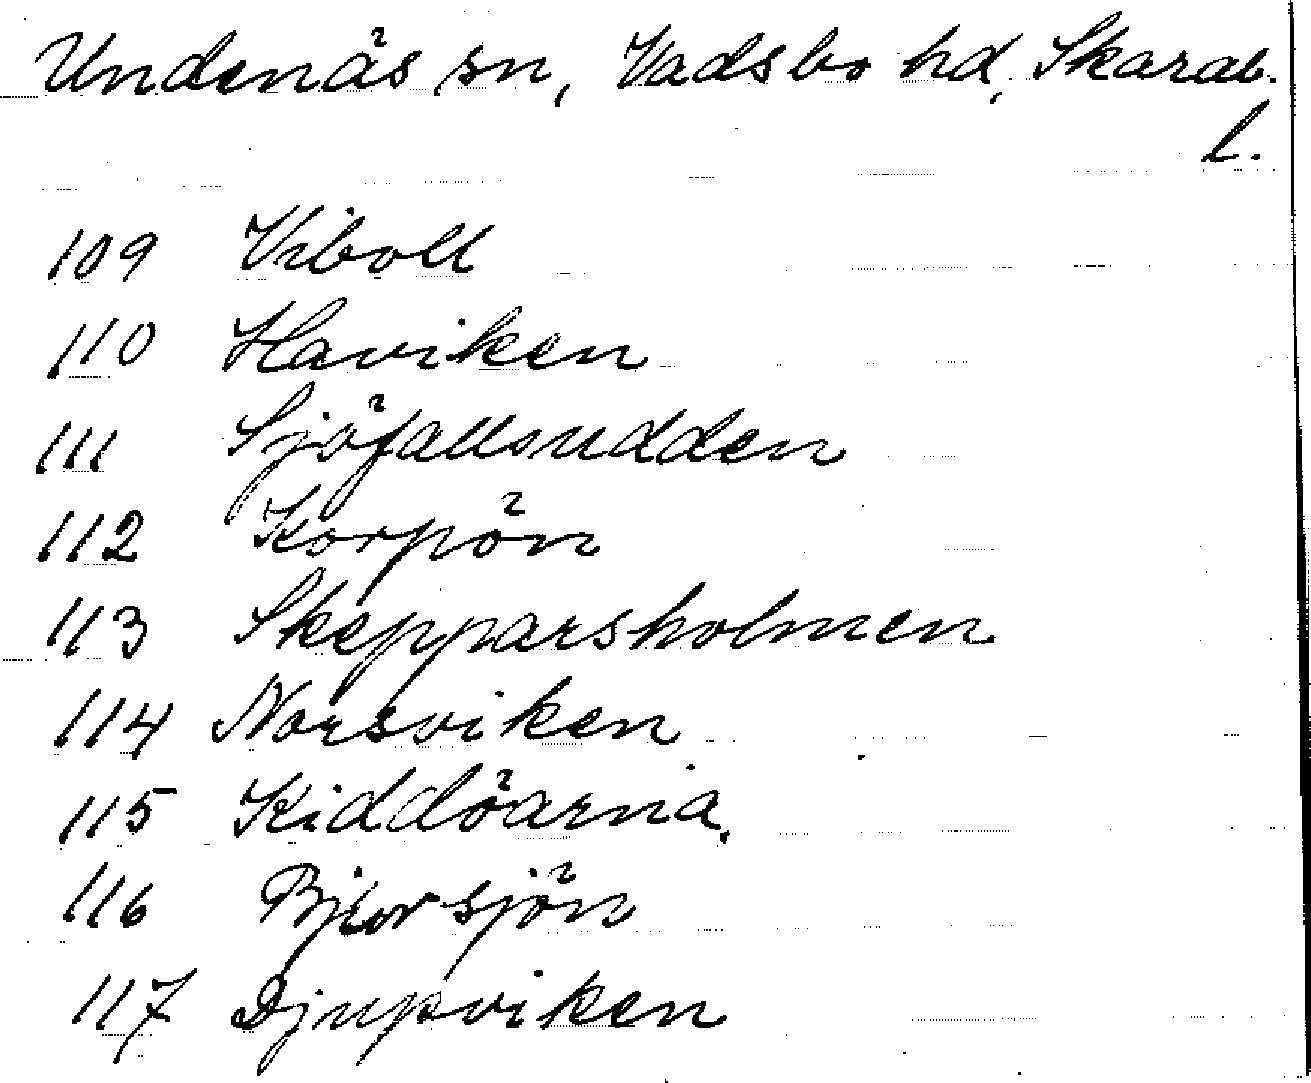 Undenäs sn, Vadsbo hd, Skarab.
l.
109 Viboll
110 Haviken
111 Sjöfallsudden
112 Korpön
113 Skepparsholmen
114 Norsviken
115 Kiddöarna.
116
117 Djupviken